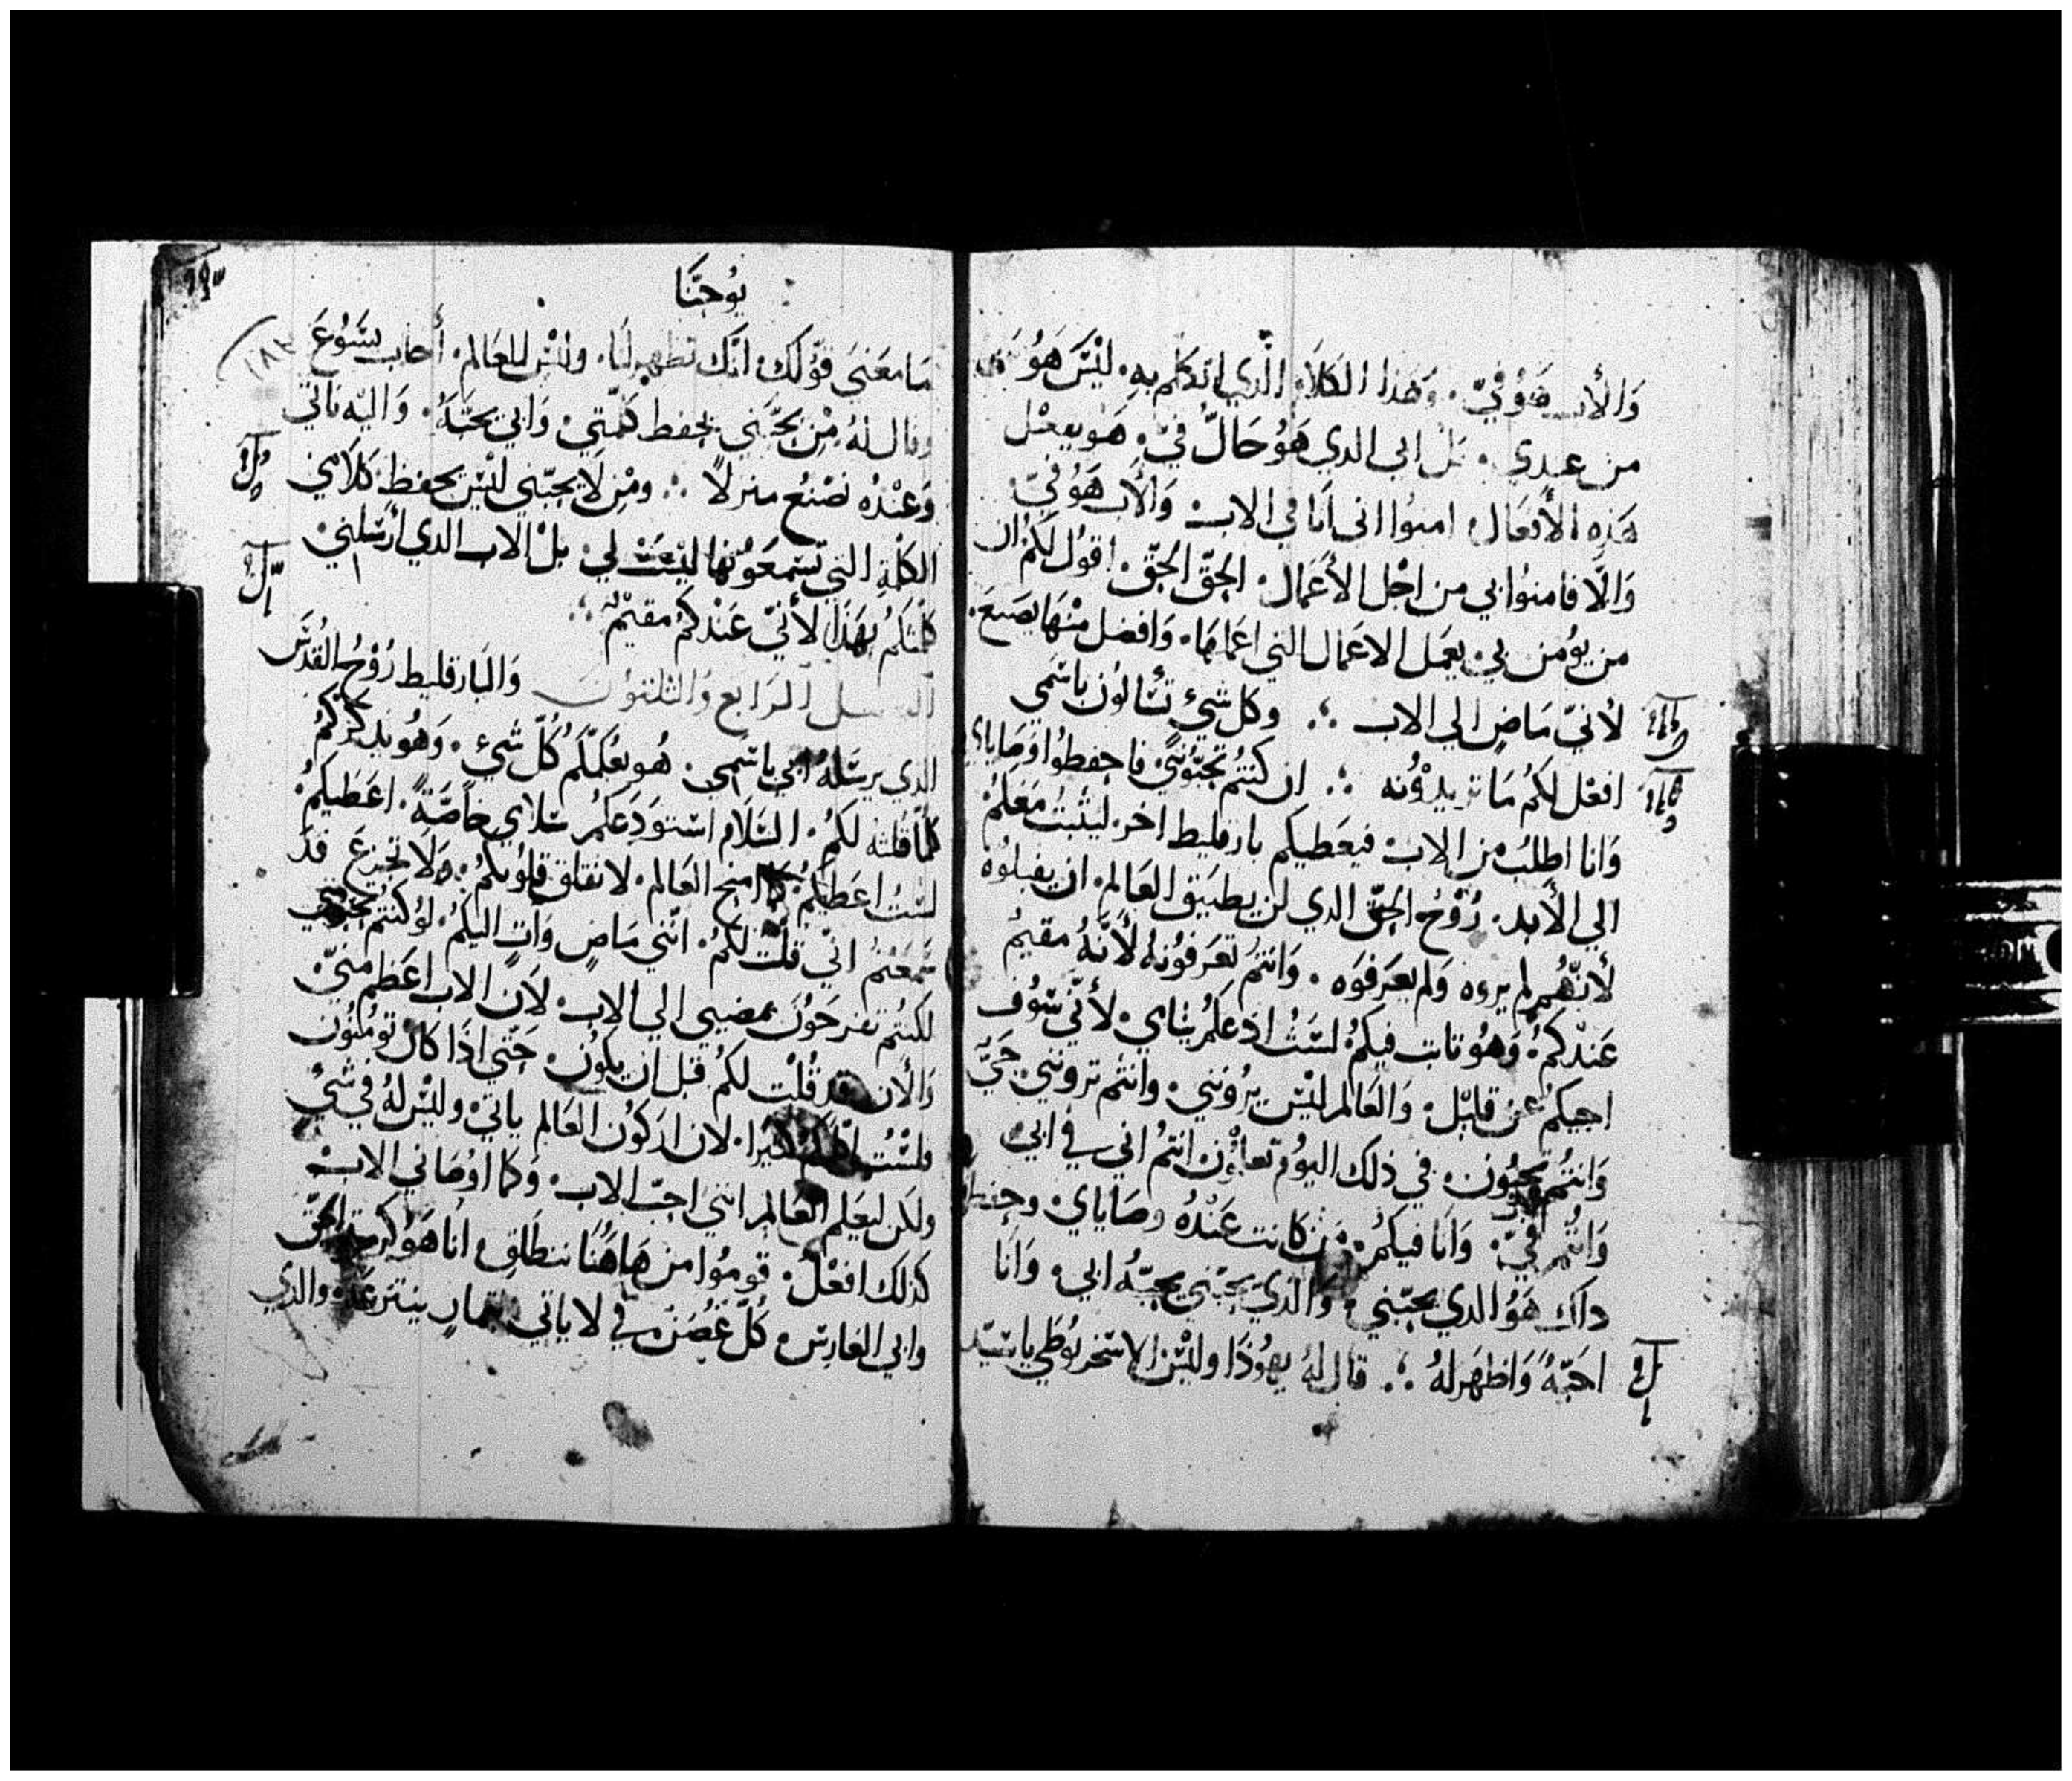 وَالأب هَوُ فيّ. وَهَذا الكَلاَم الَّذي اتكلم بهِ. ليْسَ هَوُ
من عندي. بَلْ ابي الدي هَوُ حَالٌّ فيّ. هَو يفعْل
هَذِه الأفعَال امنوُا اني اَنا في الاب وَالأب هَوُ فيّ
وَالَّا فامنوُا بي من اجْل الأعَمال. الحَقّ الحَقّ. اقوُل لكمُ ان
من يوُمن بي. يعمَل الاعَمال التي اعَملهَا. وَافضل منْهَا يصَنعَ.
لأنيّ مَاضٍ الي الاب ⁘ وَكل شيءٍ تسَالوُن باسْمي
افعْل لكمُ مَا تريدوُنه ⁘ ان كنتمُ تحَبّوُننيَ. فاحفظوُا وَصَاياي
وَانا اطلبُ من الاب فيعَطيكم بارقليط اخر. ليثبتُ معَكمْ
الي الأبد. رُوْحُ الحَقّ الدي لن يطيَق العَالم. ان يقبلوُه
لأنهُّم لم يروه وَلم يعَرفوَه. وَانتمُ تعَرفوُنهُ لأنَّهُ مقيمُ
عَندْكمُ. وَهوُ ثابت فيكمُ لسَتُ ادعَكمُ يتاميِ. لأنيّ سَوُف
اجيكمُ عَن قليْل. وَالعَالم ليْسَ يرُونني. وانتمُ ترونني. حَيَّ
وَانتمُ تحيوُن. في ذلك اليوُم تعلموُن انتمُ اني في ابي
وَانتُم فيّ. وَانَا فيكمُ. فمَن كانت عَندْهُ وصَاياي. وحفظها
داك هَوُ الدي يحبّني. وَالدي يحبّني يحبّهُ ابي. وَانَا
احَبّهُ وَاظهَر لهُ ⁘ قال لهُ يهوُدَا وليْسَ الاسَخريوُطي يا سَيّد
يوُحَنَّا
مَا معَنيَ قوْلك. انَّك تظهر لنَا. وليْس للعَالم. أجاب يسَوُعَ
وقال لهُ مِنْ يحَّبني يحفظ كلمَّتي. وَابي يحبّهُ. وَاليْه ناتي
وَعنْدهُ نصْنعُ منزلاً ⁘ ومْن لاَ يحبّني ليْس يحفظ كَلامي
الكلْمةِ التي تسَمعَوُنها ليْسَتْ لي. بلْ الاب الدي ارْسَلني
كلمَّتكمُ بهَذَا لأنيّ عَندْكمُ مقيْم ⁘
الفصل الرَابع وَالثلثوُن وَالبَارقليط رُوْحُ القدُسَ
الدي يرسَلهُ ابي باسَمي. هُو يعُلمّكم كُلّ شيْءٍ. وَهُو يدكركمُ
كلمّا قلته لكمُ. السَلاَم اسَتوَدعَكمُ سَلامي خاصَّةً. اعَطيكمُ
لسَتُ اعَطيْكمُ كما منح العَالم. لا تقلق قلوُبكمُ. وَلاَ تجزعَ قد
سَمعَتمُ انيّ قلْت لكمُ. انّني مَاضٍ وَاتٍ اليكمُ. لوُ كنتمُ تحبوني
لكنتمُ تفرحَوُنَ بمضيي الي الاب. لأن الاب اعَظم منيّ.
وَالأن قد قُلْت لكمُ قبل ان يكوُن. حَتّي اذَا كانَ توَمُنوُن
ولسْتُ اكلمكم كثيرا. لان اركوُن العَالم ياتي. وليْسَ لهُ في شيٌ
ولكن ليعَلم العَالم انني احبّ الاب. وَكما اوُصَاني الاب
كذلك افعْل. قوموُا من هَاهُنَا ننطَلِق. انا هَوُ كرمة الحَقّ
وابي الغَارسَ. كُلّ غصُن في لا ياتي بثمارٍ ينتزعَهْ والدي